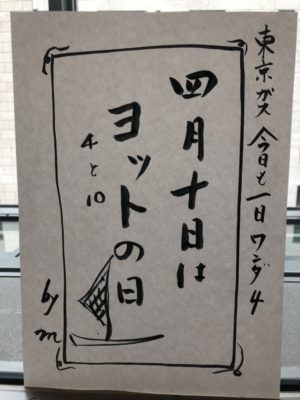 東京ガス 今日も一日ワンダ4
四月十日は
ヨットの日
4と10
by m